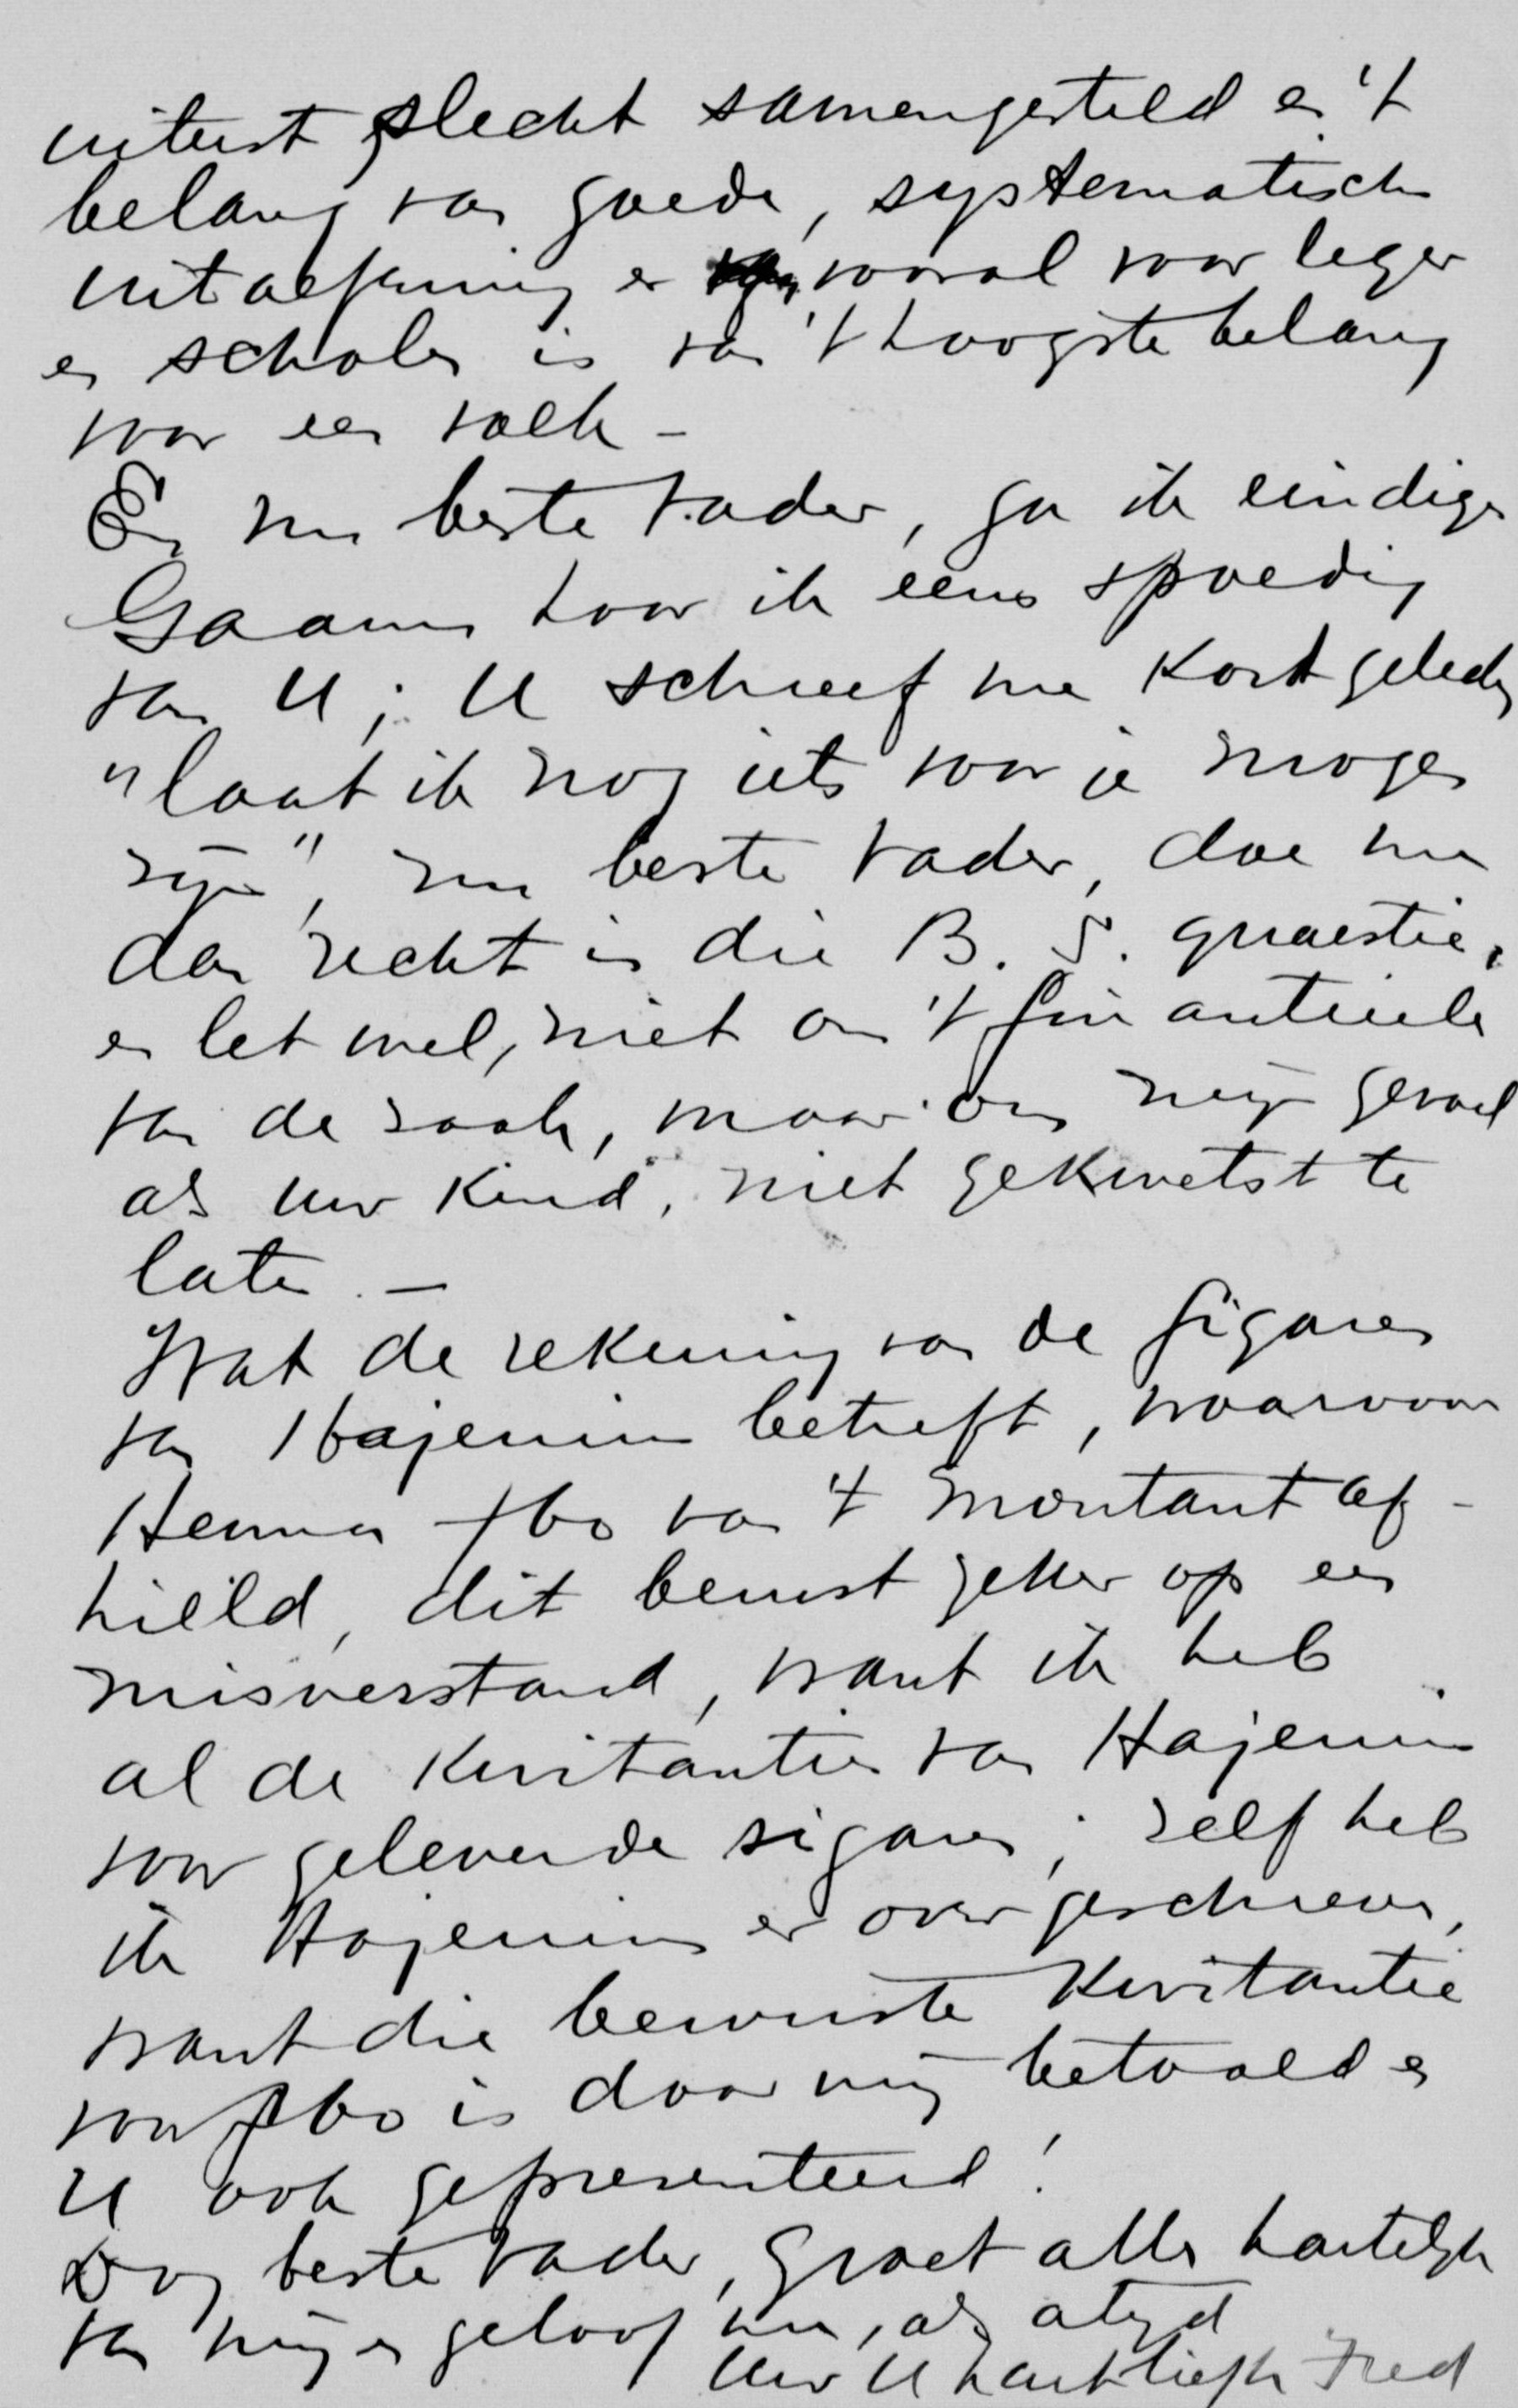 uiterst slecht samengesteld en 't
belang van goede, systematische
uitoefening en vooral voor leger
en scholen is van 't hoogste belang
voor een volk –
En nu beste Vader, ga ik eindigen
Gaarne hoor ik eens spoedig
van U; U schreef me kort geleden
"laat ik nog iets voor je mogen
zijn", nu beste Vader, doe me
dan recht in die B. S. quaestie,
en let wel, niet om 't finantieele
van de zaak, maar om mijn gevoel
als uw kind, niet gekwetst te
laten. –
Wat de rekening van de sigaren
van Hajenius betreft, waarvoor
Henny f60 van 't montant af-
hield, dit berust zeker op een
misverstand, want ik heb
al de kwitanties van Hajenius
voor geleverde sigaren; zelf heb
ik Hajenius er over geschreven,
want die bewuste kwitantie
voor f60 is door mij betaald en
U ook gepresenteerd!
Dag beste Vader, groet allen hartelijk
van mij en geloof me, als altijd
Uw U hartlief Fred